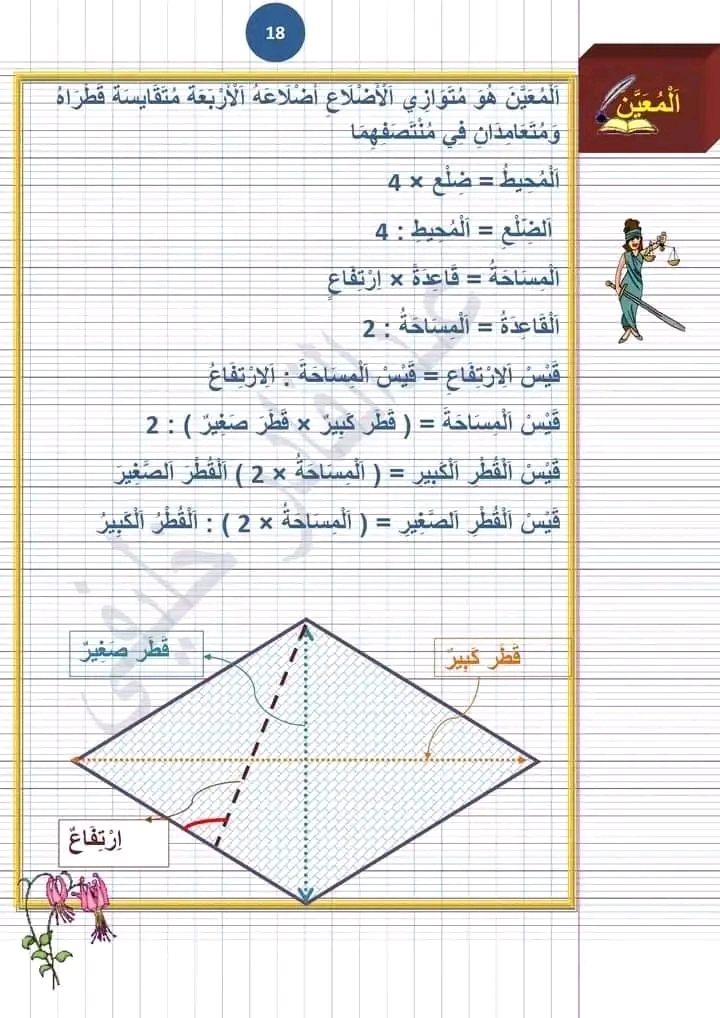 18
اَلْمُعَيَّن
اَلْمُعَيَّنُ هُوَ مُتَوَازِي اَلْأَضْلَاعِ أَضْلَاعَهُ اَلْأَرْبَعَة مُتَقَايِسَة قَطْرَاهُ
وَمُتَعَامِدَانِ فِي مُنْتَصَفِهِمَا
اَلْمُحِيطُ = ضِلْع × 4
اَلضِّلْعِ = اَلْمُحِيطِ : 4
اَلْمِسَاحَةُ = قَاعِدَةْ × اِرْتِفَاعٍ
اَلْقَاعِدَةُ = اَلْمِسَاحَةُ : 2
قَيْسُ اَلِارْتِفَاعِ = قَيْسُ اَلْمِسَاحَةَ : اَلِارْتِفَاعُ
قَيْسُ اَلْمِسَاحَةَ = ( قَطْر كَبِيرٌ × قَطْرَ صَغِيرٌ ) : 2
قَيْسُ اَلْقُطْرِ اَلْكَبِيرِ = ( اَلْمِسَاحَةُ × 2 ) اَلْقُطْر اَلصَّغِيرَ
قَيْسُ اَلْقُطْرِ اَلصَّغِيرِ = ( اَلْمِسَاحَةُ × 2 ) : اَلْقُطْرُ اَلْكَبِيرُ
قَطَر صَغِيرٌ
قَطْر كَبِيرٌ
اِرْتِفَاعٌ